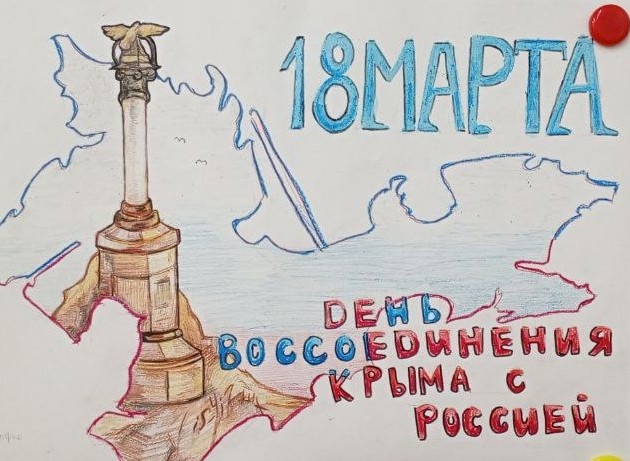 18 МАРТА
ДЕНЬ
ВОССОЕДИНЕНИЯ
КРЫМА С
РОССИЕЙ